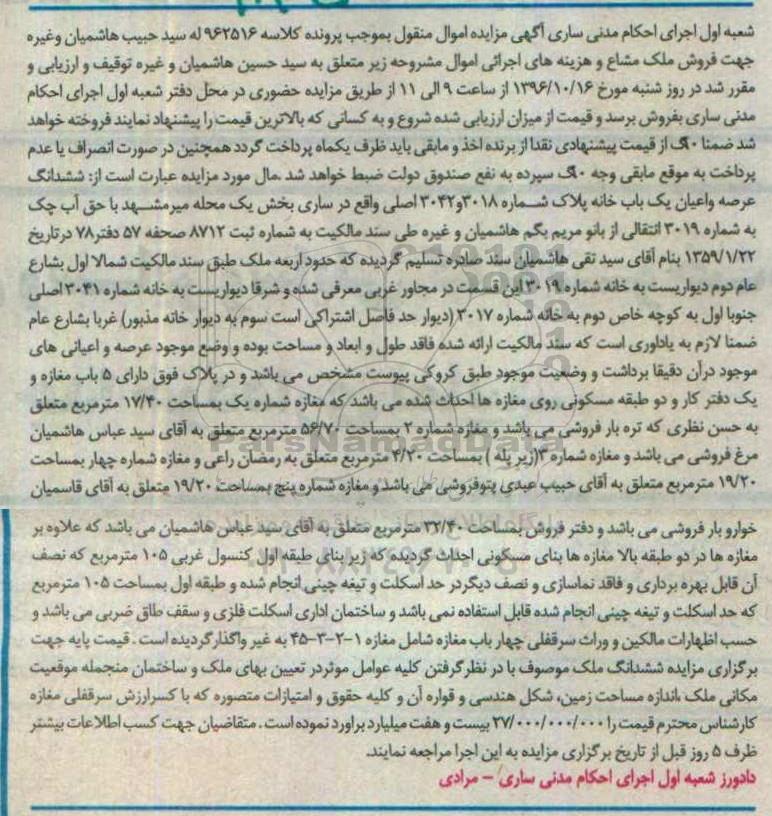 شعبه اول اجرای احکام مدنی ساری آگهی مزایده اموال منقول بموجب پرونده کلاسه ۹۶۲۵۱۶ له سید حبیب هاشمیان وغیره
جهت فروش ملک مشاع و هزینه های اجرائی اموال مشروحه زیر متعلق به سید حسین هاشمیان و غیره توقیف و ارزیابی و
مقرر شد در روز شنبه مورخ ۱۳۹۶/۱۰/۱۶ از ساعت ۹ الی ۱۱ از طریق مزایده حضوری در محل دفتر شعبه اول اجرای احکام
مدنی ساری بفروش برسد و قیمت از میزان ارزیابی شده شروع و به کسانی که بالاترین قیمت را پیشنهاد نمایند فروخته خواهد
شد ضمنا از قیمت پیشنهادی نقدا از برنده اخذ و مابقی باید ظرف یکماه پرداخت گردد همچنین در صورت انصراف یا عدم
پرداخت به موقع مابقی وجه سپرده به نفع صندوق دولت ضبط خواهد شد .مال مورد مزایده عبارت است از: ششدانگ
عرصه واعیان یک باب خانه پلاک شماره ۳۰۱۸و۳۰۴۲ اصلی واقع در ساری بخش یک محله میرمشهد با حق آب چک
به شماره ۳۰۱۹ انتقالی از بانو مریم بگم هاشمیان و غیره طی سند مالکیت به شماره ثبت ۸۷۱۲ صحفه ۵۷ دفتر۷۸ درتاریخ
۱۳۵۹/۱/۲۲ بنام آقای سید تقی هاشمیان سند صادره تسلیم گردیده که حدود اربعه ملک طبق سند مالکیت شمالا اول بشارع
عام دوم دیواریست به خانه شماره ۳۰۱۹ این قسمت در مجاور غربی معرفی شده و شرقا دیواریست به خانه شماره ۳۰۴۱ اصلی
جنوبا اول به کوچه خاص دوم به خانه شماره ۳۰۱۷ (دیوار حد فاصل اشتراکی است سوم به دیوار خانه مذبور) غربا بشارع عام
ضمنا لازم به یاداوری است که سند مالکیت ارائه شده فاقد طول و ابعاد و مساحت بوده و وضع موجود عرصه و اعیانی های
موجود درآن دقیقا برداشت و وضعیت موجود طبق کروکی پیوست مشخص می باشد و در پلاک فوق دارای ۵ باب مغازه و
یک دفتر کار و دو طبقه مسکونی روی مغازه ها احداث شده می باشد که مغازه شماره یک بمساحت ۱۷/۴۰ مترمربع متعلق
به حسن نظری که تره بار فروشی می باشد و مغازه شماره ۲ بمساحت ۵۶/۷۰ مترمربع متعلق به آقای سید عباس هاشمیان
مرغ فروشی می باشد و مغازه شماره ۳(زیر پله ) بمساحت ۴/۲۰ مترمربع متعلق به رمضان راعی و مغازه شماره چهار بمساحت
۱۹/۲۰ مترمربع متعلق به آقای حبیب عبدی پتوفروشی می باشد و مغازه شماره پنج بمساحت ۱۹/۲۰ متعلق به آقای قاسمیان
خوارو بار فروشی می باشد و دفتر فروش بمساحت ۳۲/۴۰ مترمربع متعلق به آقای سید عباس هاشمیان می باشد که علاوه بر
مغازه ها در دو طبقه بالا مغازه ها بنای مسکونی احداث گردیده که زیر بنای طبقه اول کنسول غربی ۱۰۵ مترمربع که نصف
آن قابل بهره برداری و فاقد نماسازی و نصف دیگردر حد اسکلت و تیغه چینی انجام شده و طبقه اول بمساحت ۱۰۵ مترمربع
که حد اسکلت و تیغه چینی انجام شده قابل استفاده نمی باشد و ساختمان اداری اسکلت فلزی و سقف طاق ضربی می باشد و
حسب اظهارات مالکین و وراث سرقفلی چهار باب مغازه شامل مغازه ۱-۲-۳-۴۵ به غیر واگذارگردیده است . قیمت پایه جهت
برگزاری مزایده ششدانگ ملک موصوف با در نظرگرفتن کلیه عوامل موثردر تعیین بهای ملک و ساختمان منجمله موقعیت
مکانی ملک ،اندازه مساحت زمین، شکل هندسی و قواره آن و کلیه حقوق و امتیازات متصوره که با کسرارزش سرقفلی مغازه
کارشناس محترم قیمت را ۲۷/۰۰۰/۰۰۰/۰۰۰ بیست و هفت میلیارد براورد نموده است . متقاضیان جهت کسب اطلاعات بیشتر
ظرف ۵ روز قبل از تاریخ برگزاری مزایده به این اجرا مراجعه نمایند.
دادورز شعبه اول اجرای احکام مدنی ساری - مرادی
ParsNamadData